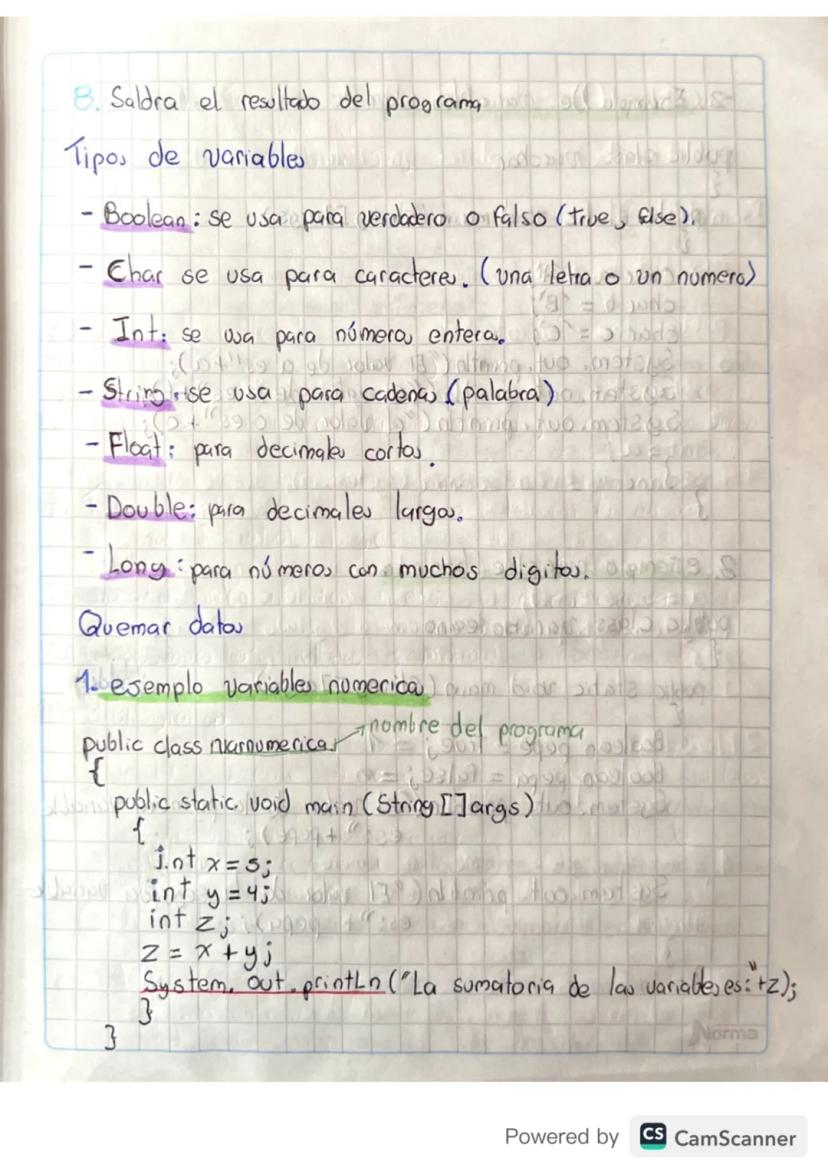 8. Saldra el resultado del programa
Tipos de variables
- Boolean: se usa para verdadero o falso (true, false).
- Char se usa para caracteres. (una letra o un numero)
- Int: se usa para números enteros.
- String: se usa para cadenas (palabra)
- Float: para decimales cortos.
- Double: para decimales largos.
- Long: para números con muchos digitos.
Quemar datos
1. esemplo variables numericas
public class varnumericas → nombre del programa
{
public static void main (String []args)
{
int x = 5;
int y = 4;
int z;
z = x + y;
System. out. printLn ("La sumatoria de las variables es:"+z);
}
}
Norma
Powered by CS CamScanner